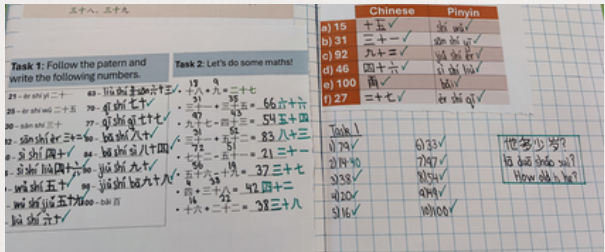 三十八、三十九
Task 1: Follow the patern and
write the following numbers.
21 – èr shí yī 二十一
25 – èr shí wǔ 二十五
30 – sān shí 三十
sān shí èr 三十二
sì shí 四十
sì shí liù 四十六
wǔ shí 五十
wǔ shí wǔ 五十五
liù shí 六十
63 – liù shí sān 六十三
70 – qī shí 七十
77 – qī shí qī 七十七
80 – bā shí 八十
84 – bā shí sì 八十四
90 – jiǔ shí 九十
98 – jiǔ shí bā 九十八
100 – bǎi 百
Task 2: Let's do some maths!
18 9
十八 + 九 = 二十七
31 35
三十一 + 三十五 = 66 六十六
97 43
九十七 - 四十三 = 54 五十四
31 52
三十一 + 五十二 = 83 八十三
72 51
七十二 - 五十一 = 21
56 19
五十六 - 十九 = 37 三十七
4 38
四 + 三十八 = 42 四十二
16 22
十六 + 二十二 = 38 三十八
Chinese Pinyin
a) 15 十五 shí wǔ
b) 31 三十一 sān shí yī
c) 92 九十二 jiǔ shí èr
d) 46 四十六 sì shí liù
e) 100 bǎi
f) 27 二十七 èr shí qī
Task 1
1) 79 6) 33
2) 14 40 7) 47
3) 38 8) 54
4) 20 9) 49
5) 16 10) 100
他多少岁?
tā duō shǎo suì?
How old is he?